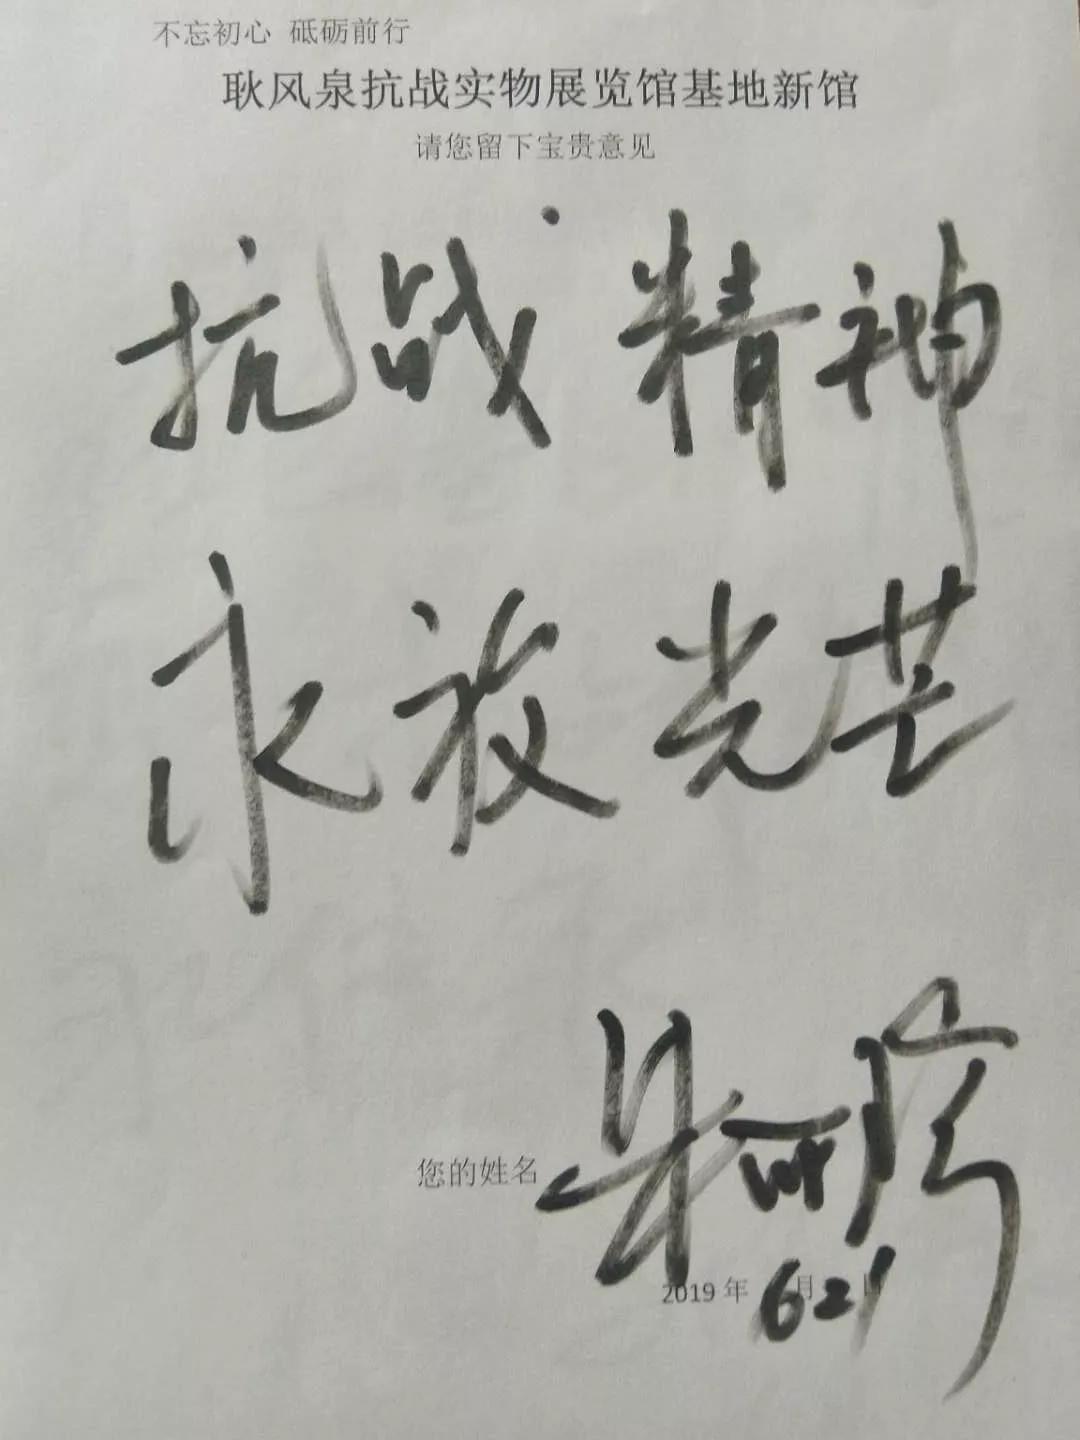 不忘初心 砥砺前行
耿风泉抗战实物展览馆基地新馆
请您留下宝贵意见
抗战精神
永放光芒
您的姓名
2019年6月21日